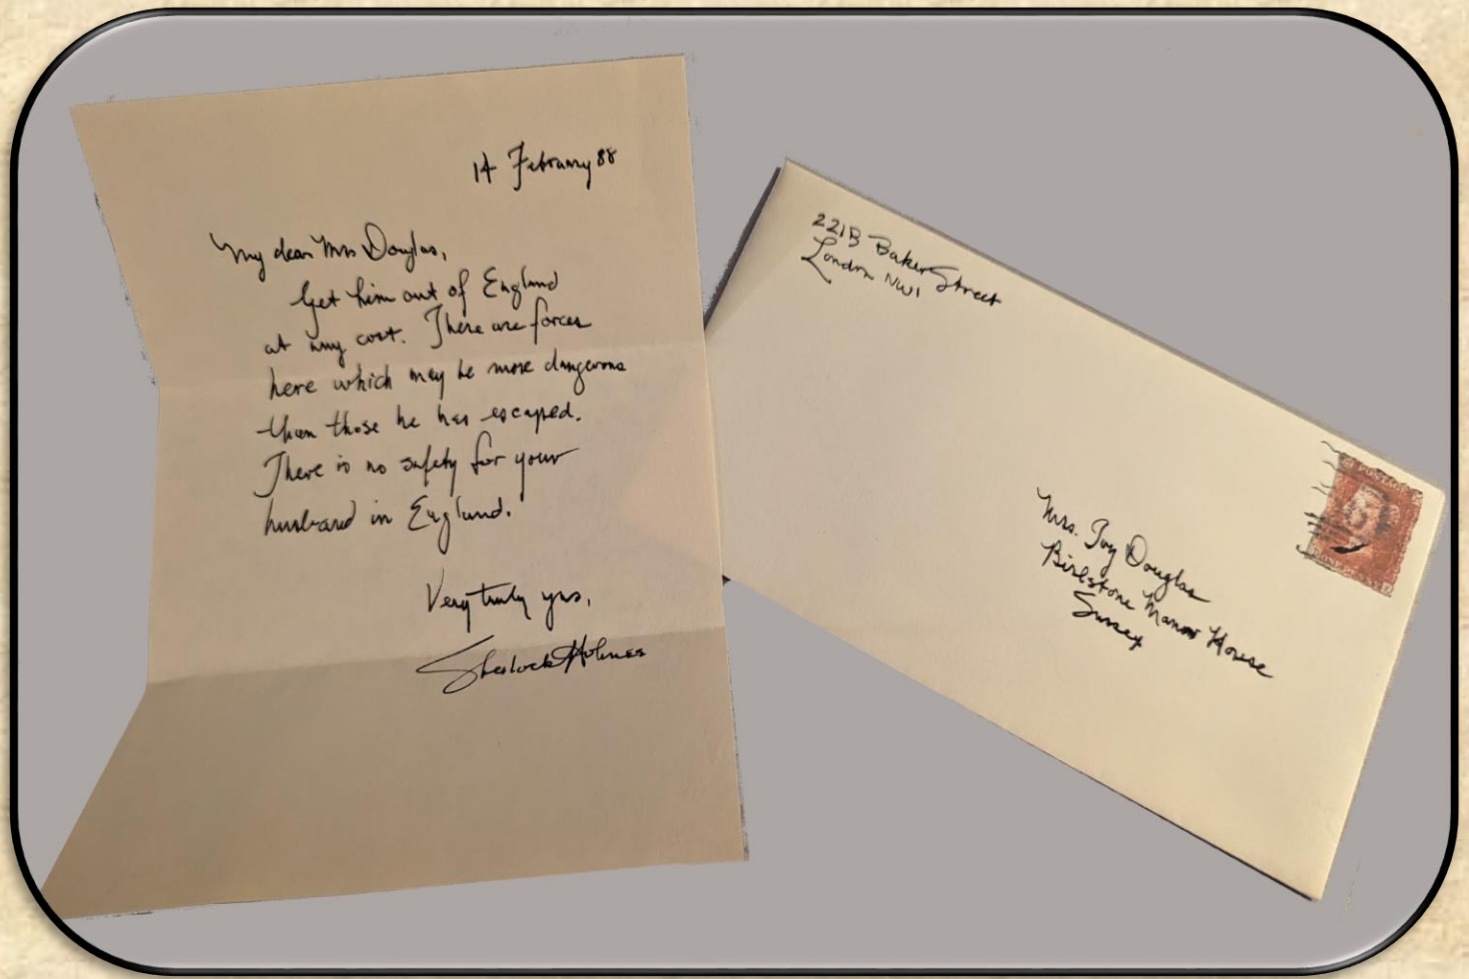 14 February 88
My dear Mrs Douglas,
Get him out of England
at any cost. There are forces
here which may be more dangerous
than those he has escaped.
There is no safety for your
husband in England.
Very truly yrs,
Sherlock Holmes
221B Baker Street
London NW1
Mrs. Ivy Douglas
Birlstone Manor House
Sussex